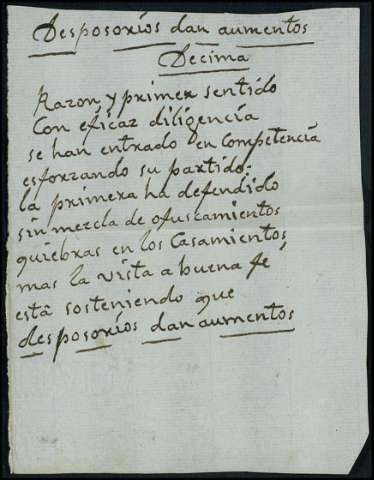 Desposorios dan aumentos
Decima
Razon y primer sentido
Con eficaz diligencia
se han entrado en competencia
esforzando su partido:
la primera ha defendido
sin mezcla de ofuscamientos
quiebras en los Casamientos,
mas la vista a buena fé
está sosteniendo que
desposorios dan aumentos